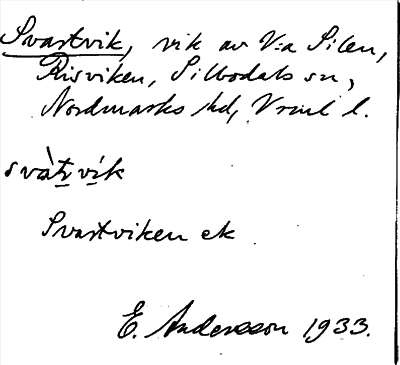 Svartvik, vik av V:a Silen,
Risviken, Silbodals sn,
Nordmarks hd, Vrml l.
svàtvík
Svartviken ek
E. Andersson 1933.